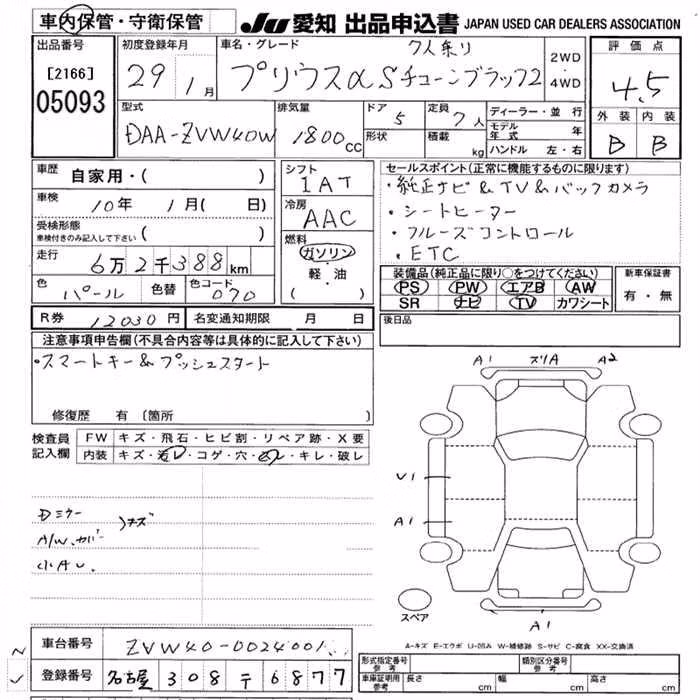 車内保管・守衛保管
JU 愛知 出品申込書 JAPAN USED CAR DEALERS ASSOCIATION
出品番号
[2166]
05093
初度登録年月
29年 1月
車名・グレード 7人乗り
プリウスα Sチューンブラック2
2WD
・
4WD
評価点
4.5
外装 内装
B B
型式
DAA-ZVW40W
排気量
1800cc
ドア 5
形状
定員 7人
積載 kg
ディーラー・並行
モデル年式 年
ハンドル 左・右
車歴 自家用・( )
車検 10年 1月( 日)
受検形態
車検付きのみ記入して下さい ( )
走行 6万2千388km
色 パール 色替 色コード 070
シフト
IAT
冷房
AAC
燃料
ガソリン
軽・油
( )
セールスポイント(正常に機能するものに限ります)
・純正ナビ&TV&バックカメラ
・シートヒーター
・クルーズコントロール
・ETC
装備品(純正品に限り○をつけてください)
PS PW エアB AW
SR ナビ TV カワシート
新車保証書
有・無
R券 12030円 名変通知期限 月 日
後日品
注意事項申告欄(不具合内容等は具体的に記入して下さい)
・スマートキー&プッシュスタート
修復歴 有 〔箇所 〕
検査員
記入欄
FW キズ・飛石・ヒビ割・リペア跡・X要
内装 キズ・汚レ・コゲ・穴・スレ・キレ・破レ
Dミラー
A/W、カバー キズ
小AU、
A1 スリA A2
U1
A1
スペア
A1
A-キズ E-エクボ U-凹A W-補修跡 S-サビ C-腐食 XX-交換済
車台番号 ZVW40-0024001
登録番号 名古屋 308 テ 6877
形式指定番号
参考
類別区分番号
参考
車庫証明用
参考
長さ cm 幅 cm 高さ cm